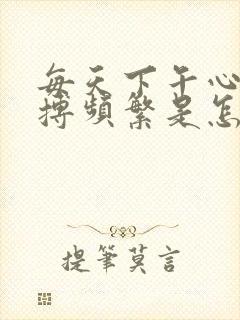 每天下午心
搏頻繁是怎
提筆莫言